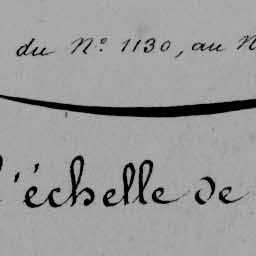 du N.o 1130, au N
l'échelle de